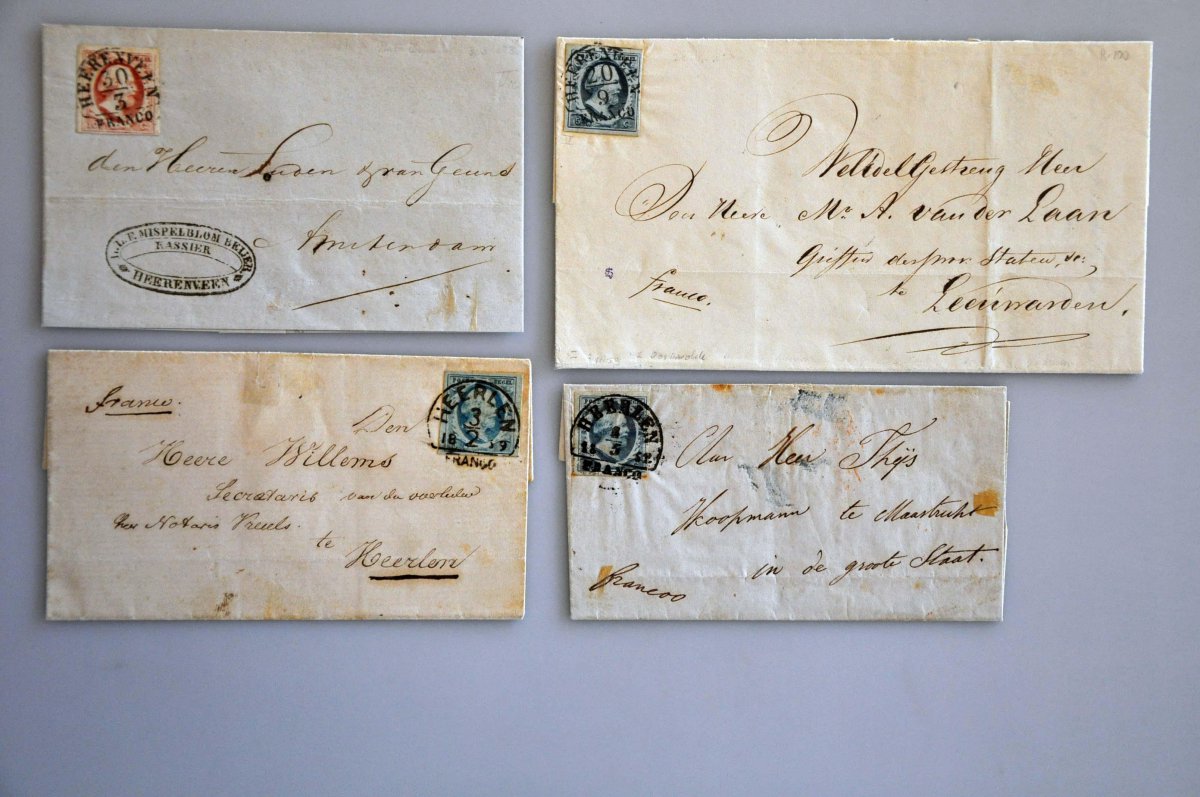 HEERENVEEN
30
3
FRANCO
den Heeren Luden & van Geuns
Amsterdam
MISPELBLOM BEIJER
KASSIER
HEERENVEEN
HEERENVEEN
20
9
FRANCO
WelEdelGestreng Heer
Den Heere Mr A. van der Laan
Griffier der Staten,
te
franco.
Leeuwarden.
franco.
HEERLEN
3
2
18 59
FRANCO
Den
Heere Willems
Secretaris van du
Notaris
te
Heerlen
HEERLEN
3
FRANCO
Aan Heer Thijs
Koopmann te Maastricht
in de groote Staat.
francoo